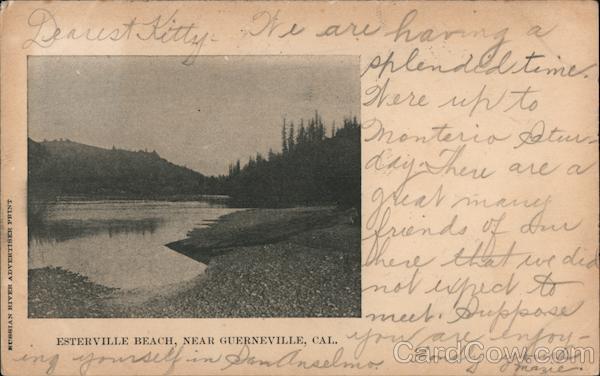 Dearest Kitty- We are having a
splendid time.
Were up to
Monterio Satur-
day. There are a
great many
friends of our
here that we did
not expect to
meet. Suppose
you are enjoy-
ing yourself in San Anselmo.
Marie.
ESTERVILLE BEACH, NEAR GUERNEVILLE, CAL.
RUSSIAN RIVER ADVERTISER PRINT.
CardCow.com